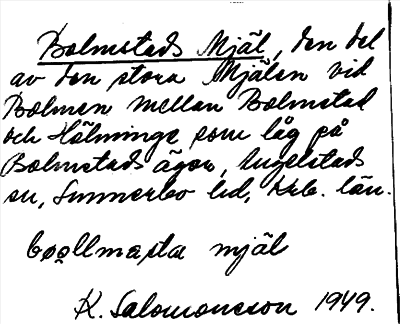 Bolmstads Mjäl, den del
av den stora Mjälen vid
Bolmen mellan Bolmstad
och Hölminge som låg på
Bolmstads ägor, Angelstads
sn, Sunnerbo hd, Krb. län.
mjäl
K. Salomonsson 1949.